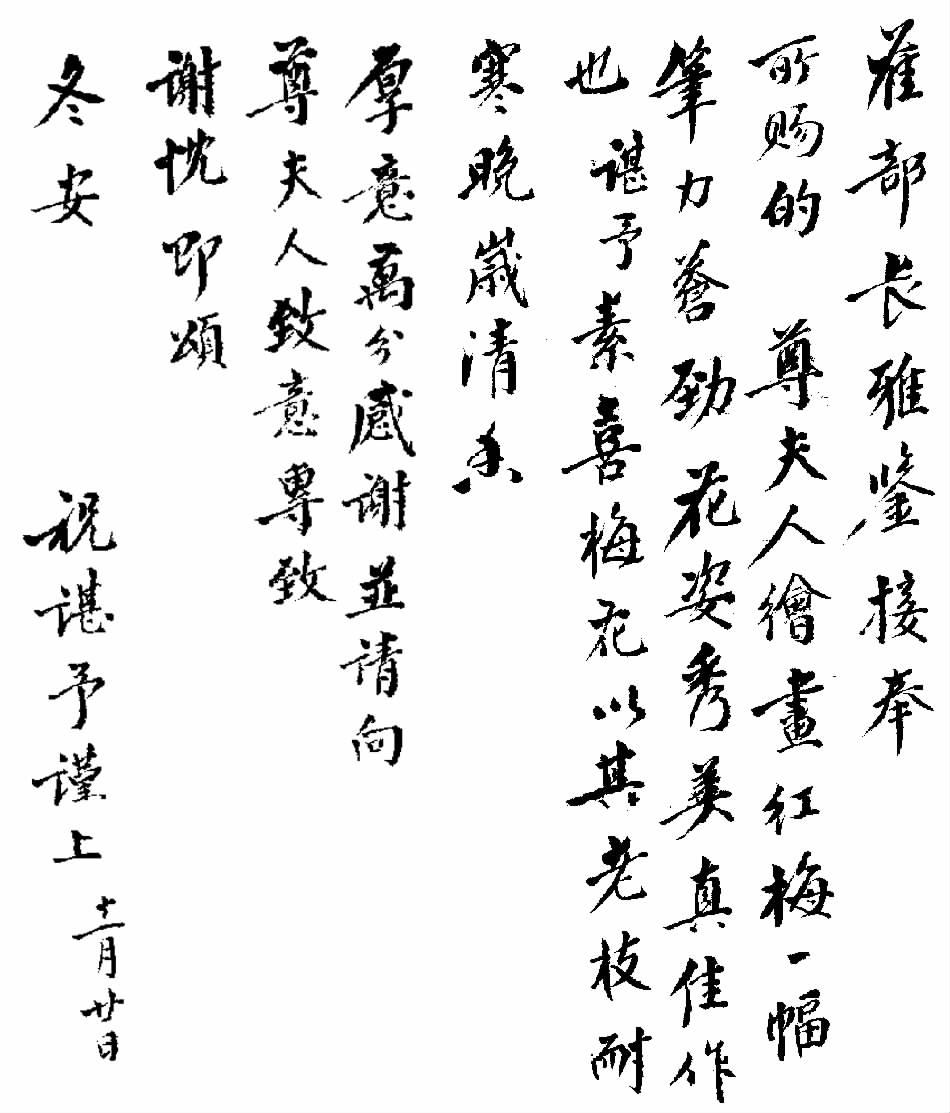 崔部长雅鉴接奉
所赐的 尊夫人繪畫红梅一幅
筆力蒼勁花姿秀美真佳作
也 谌予素喜梅花以其老枝耐
寒晚歲清香
厚意萬分感谢並请向
尊夫人致意專致
谢忱即頌
冬安
祝谌予谨上
十一月廿日